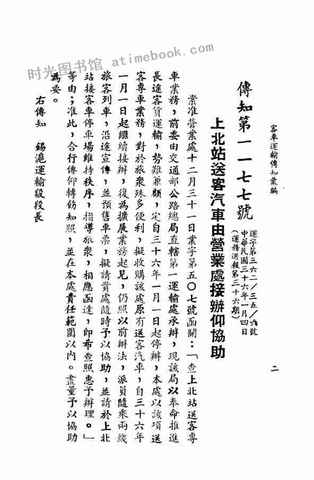 时光图书馆 atimebook.com
客車運輸傳知彙編
二
傳知第一一七七號
運字第三六二一/三五/
中華民國三十六年一月四日
(運務週報第三十六期)
上北站送客汽車由營業處接辦仰協助
案准營業處十二月三十一日業字第五〇七號函開:「查上北站送客專
車業務,前委由交通部公路總局直轄第一運輸處承辦,現該局以奉命推進
長途客貨運輸,勢難兼顧,定自三十六年一月一日起停辦,本處以該項送
客專車業務,對於旅衆殊多便利,擬收購該處原有送客汽車,自三十六年
一月一日起繼續接辦,復為擴展業務起見,仍照以前辦法,派員隨乘兩綫
旅客列車,沿途宣傳,並預售車票,擬請貴處隨時予以協助,並請於上北
站接客車停車場維持秩序,指導旅衆,相應函達,即希查照惠予辦理。」
等由;准此,合行傳仰轉飭知照,並在本處責任範圍以內。盡量予以協助
為妥。
右傳知 錫滬運輸段段長